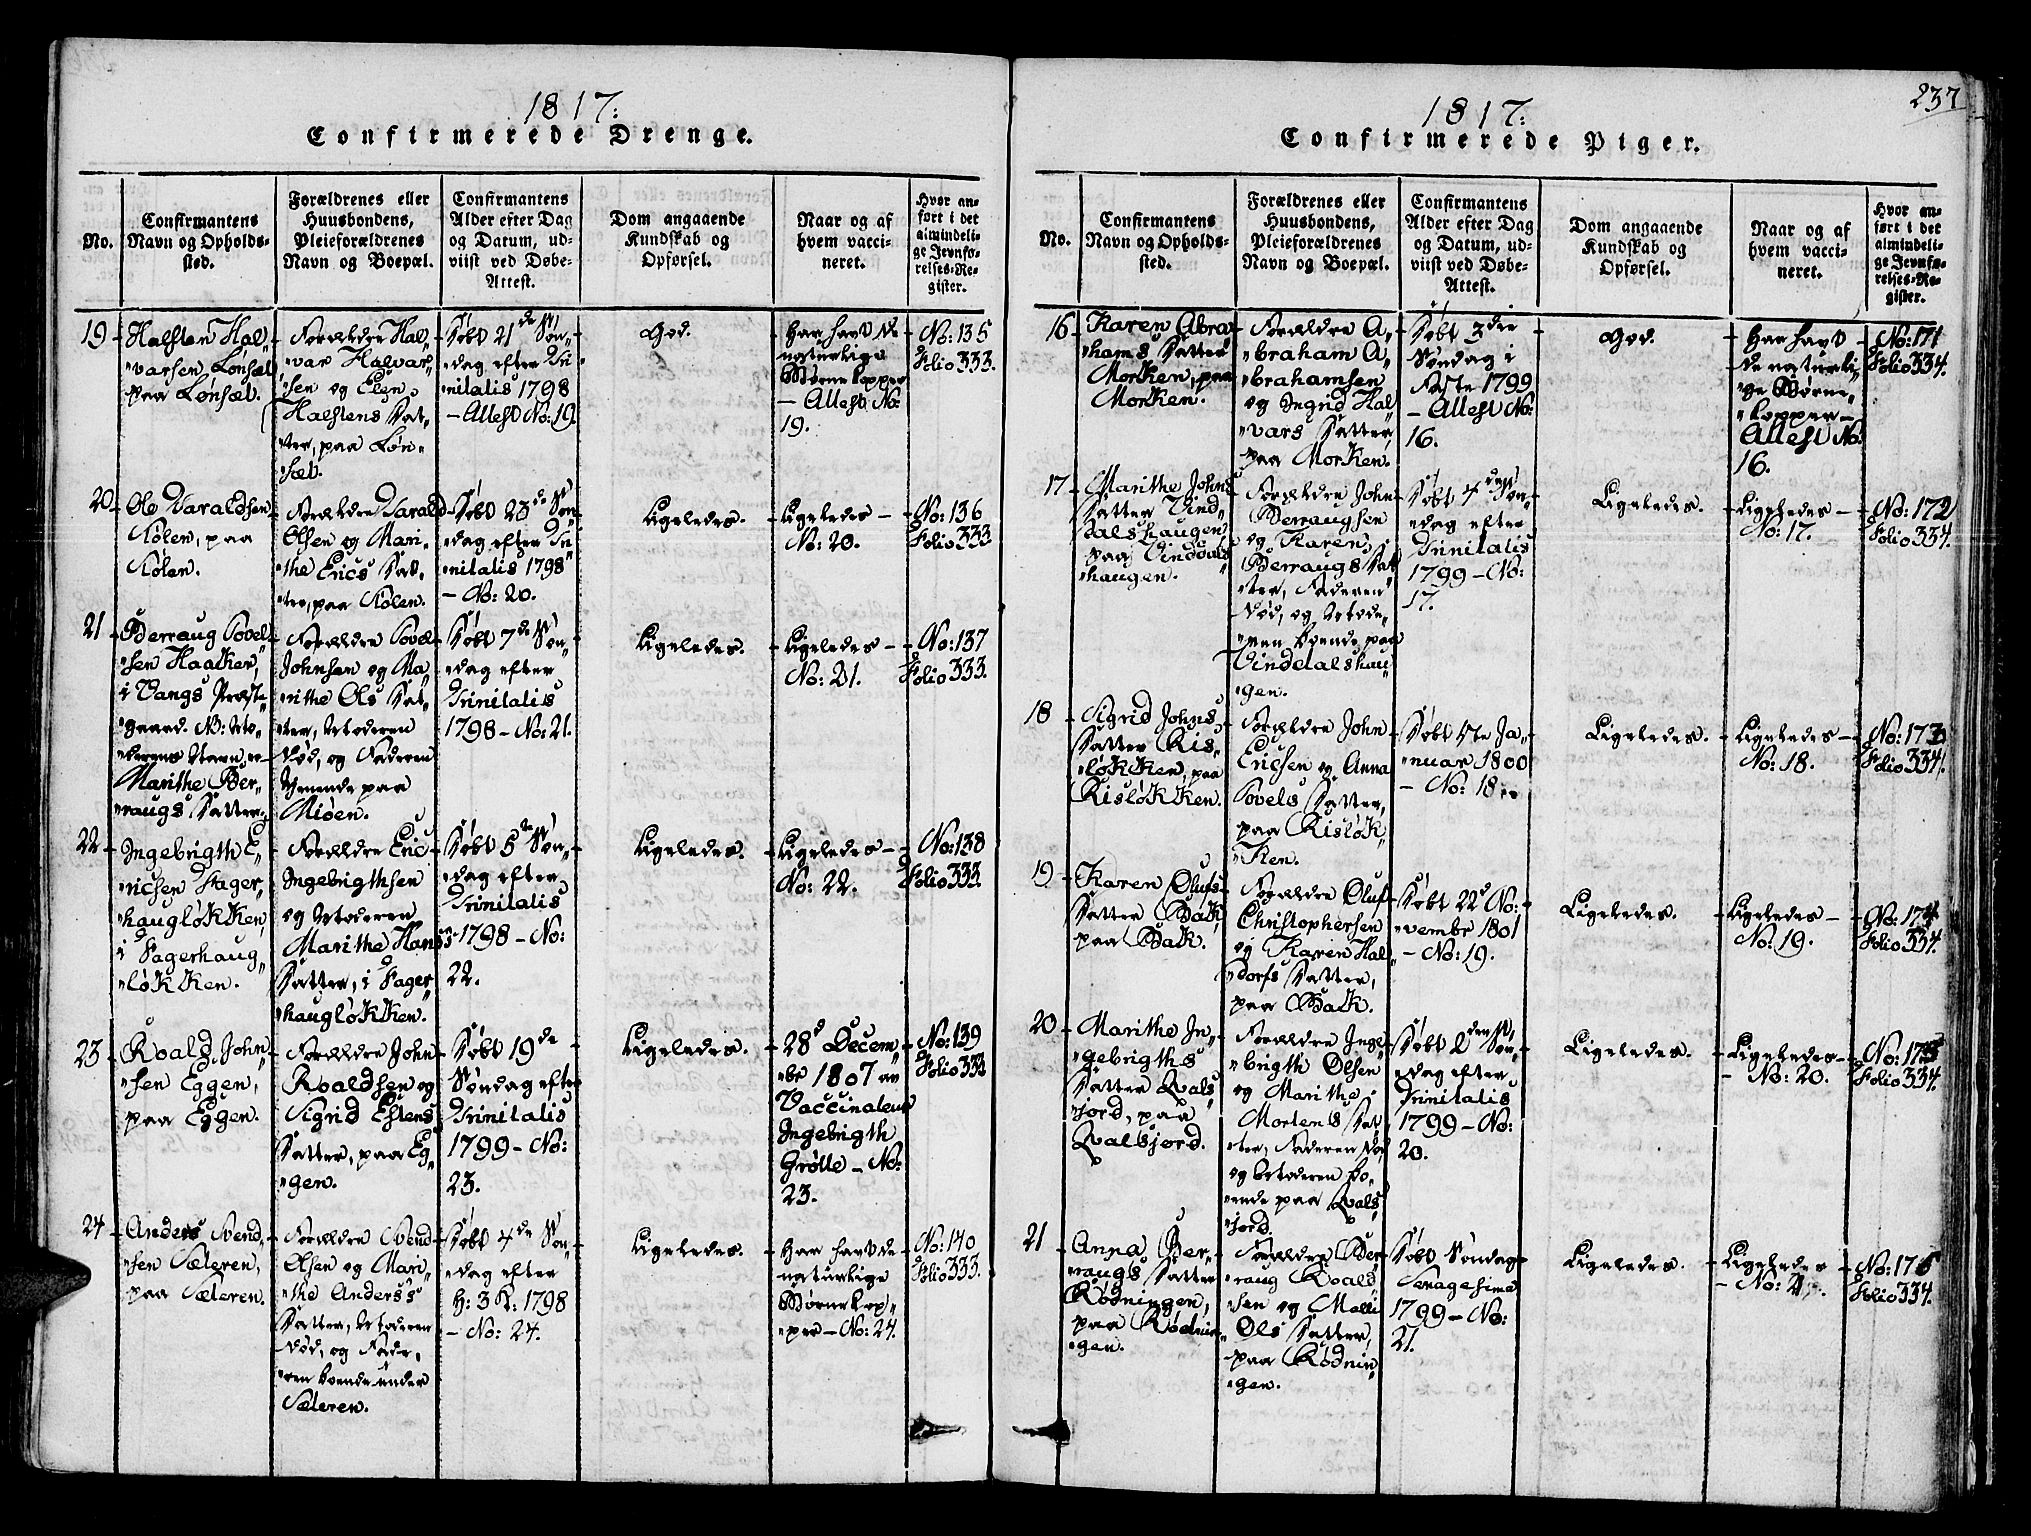 1817.
Confirmerede Drenge.
No.
Confirmantens
Navn og Opholds-
sted.
Forældrenes eller
Huusbondens,
Pleieforældrenes
Navn og Boepæl.
Confirmantens
Alder efter Dag
og Datum, ud-
viist ved Døbe-
Attest.
Dom angaaende
Kundskab og
Opførsel.
Naar og af
hvem vacci-
neret.
Hvor an-
ført i det
almindeli-
ge Jevnfø-
relses-Re-
gister.
19
Halsten Hal„
„varsen Lønset
paa Lønset.
Forældre Hal„
„var Halvar„
„sen og Elen
Halstens Dat„
„ter, paa Løn„
„set.
Døbt 21de Søn„
„dag efter Tri„
„nitatis 1798
– Attest No: 19.
God.
Har havt de
naturlige
Børnekopper
– Attest No:
19.
No: 135
Folio 333.
20
Ole Haraldsen
Kølen, paa
Kølen.
Forældre Harald
Olsen og Mari„
„the Erics Dat„
„ter, paa Kølen.
Døbt 23de Søn„
„dag efter Tri„
„nitatis 1798
– No: 20.
Ligeledes.
Ligeledes –
No: 20.
No: 136
Folio 333
21
Berraug Povel„
„sen Haaker,
i Vangs Præste„
„gaard. NB: Mo„
„derens Navn er
Marithe Ber„
„raugs Datter.
Forældre Povel
Johnsen og Ma„
„rithe Ols Dat„
„ter, Moderen
død, og Faderen
tjenende paa
Miøen.
Døbt 7de Søn„
„dag efter
Trinitatis
1798 – No: 21.
Ligeledes.
Ligeledes –
No: 21.
No: 137
Folio 333.
22
Ingebrigth E„
„ricsen Fager„
„haugløkken,
i Fagerhaug„
„løkken.
Forældre Eric
Ingebrigthsen
og Moderen
Marithe Hans
Datter, i Fager„
„haugløkken.
Døbt 5te Søn„
„dag efter
Trinitatis
1798 – No:
22.
Ligeledes.
Ligeledes –
No: 22.
No: 138
Folio 333.
23
Roald John„
„sen Eggen,
paa Eggen.
Forældre John
Roaldsen og
Sigrid Estens
Datter, paa Eg„
„gen.
Døbt 19de
Søndag efter
Trinitatis
1799 – No:
23.
Ligeledes.
28d Decem„
„br 1807 av
Vaccinateur
Ingebrigth
Grølle – No:
23.
No: 139
Folio 333
24
Anders Svend„
„sen Sæteren,
paa Sæteren.
Forældre Svend
Olsen og Mari„
„the Anderss
Datter, Moderen
død, og Fade„
„ren boende under
Sæteren.
Døbt 4de Søn„
„dag efter
H: 3 K: 1798
– No: 24.
Ligeledes.
Har havt de
naturlige
Børnekop„
„per – No: 24.
No: 140
Folio 333.
237
1817.
Confirmerede Piger.
No.
Confirmantens
Navn og Opholds-
sted.
Forældrenes eller
Huusbondens,
Pleieforældrenes
Navn og Boepæl.
Confirmantens
Alder efter Dag
og Datum, ud-
viist ved Døbe-
Attest.
Dom angaaende
Kundskab og
Opførsel.
Naar og af
hvem vacci-
neret.
Hvor an-
ført i det
almindeli-
ge Jevnfø-
relses-Re-
gister.
16
Karen Abra„
„hams Datter
Morken, paa
Morken.
Forældre A„
„braham A„
„brahamsen
og Ingrid Hal„
„vars Datter
paa Morken.
Døbt 3die
Søndag i
Faste 1799
– Attest No:
16.
God.
Har havt
de naturli„
„ge Børne„
„kopper –
Attest No:
16.
No: 171
Folio 334.
17
Marithe Johns
Datter Vind„
„dalshaugen,
paa Vinddals
„haugen.
Forældre John
Berraugsen
og Karen
Berraugs Dat„
„ter, Faderen
død, og Mode„
„ren boende paa
Vinddalshau„
„gen.
Døbt 4den Søn„
„dag efter
Trinitatis
1799 – No:
17.
Ligeledes.
Ligeledes –
No: 17.
No: 172
Folio 334.
18
Sigrid Johns
Datter Ris„
„løkken, paa
Risløkken.
Forældre John
Ericsen og Anna
Povels Datter,
paa Risløk„
„ken.
Døbt 5te Ja„
„nuar 1800
– No: 18.
Ligeledes.
Ligeledes –
No: 18.
No: 173
Folio 334.
19
Karen Olufs
Datter Bak
paa Bak.
Forældre Oluf
Christophersen
og Karen Hal„
„dorfs Datter,
paa Bak.
Døbt 22d No„
„vembr 1801
– No: 19.
Ligeledes.
Ligeledes –
No: 19.
No: 174
Folio 334.
20
Marithe In„
„gebrigths
Datter Qvals„
„jord, paa
Qvalsjord.
Forældre Inge„
„brigth Olsen
og Marithe
Mortens Dat„
„ter, Faderen død
og Moderen bo„
„ende paa Qvals„
„jord.
Døbt 2den Søn„
„dag efter
Trinitatis
1799 – No:
20.
Ligeledes.
Ligeledes –
– No: 20.
No: 175
Folio 334.
21
Anna Ber„
„raugs Datter
Rødningen,
paa Rødnin„
„gen.
Forældre Ber„
„raug Roald„
„sen og Malli
Ols Datter,
paa Rødnin„
„gen.
Døbt Søndag
Sexagesima
1799 – No:
21.
Ligeledes.
Ligeledes
– No: 21.
No: 176
Folio 334.